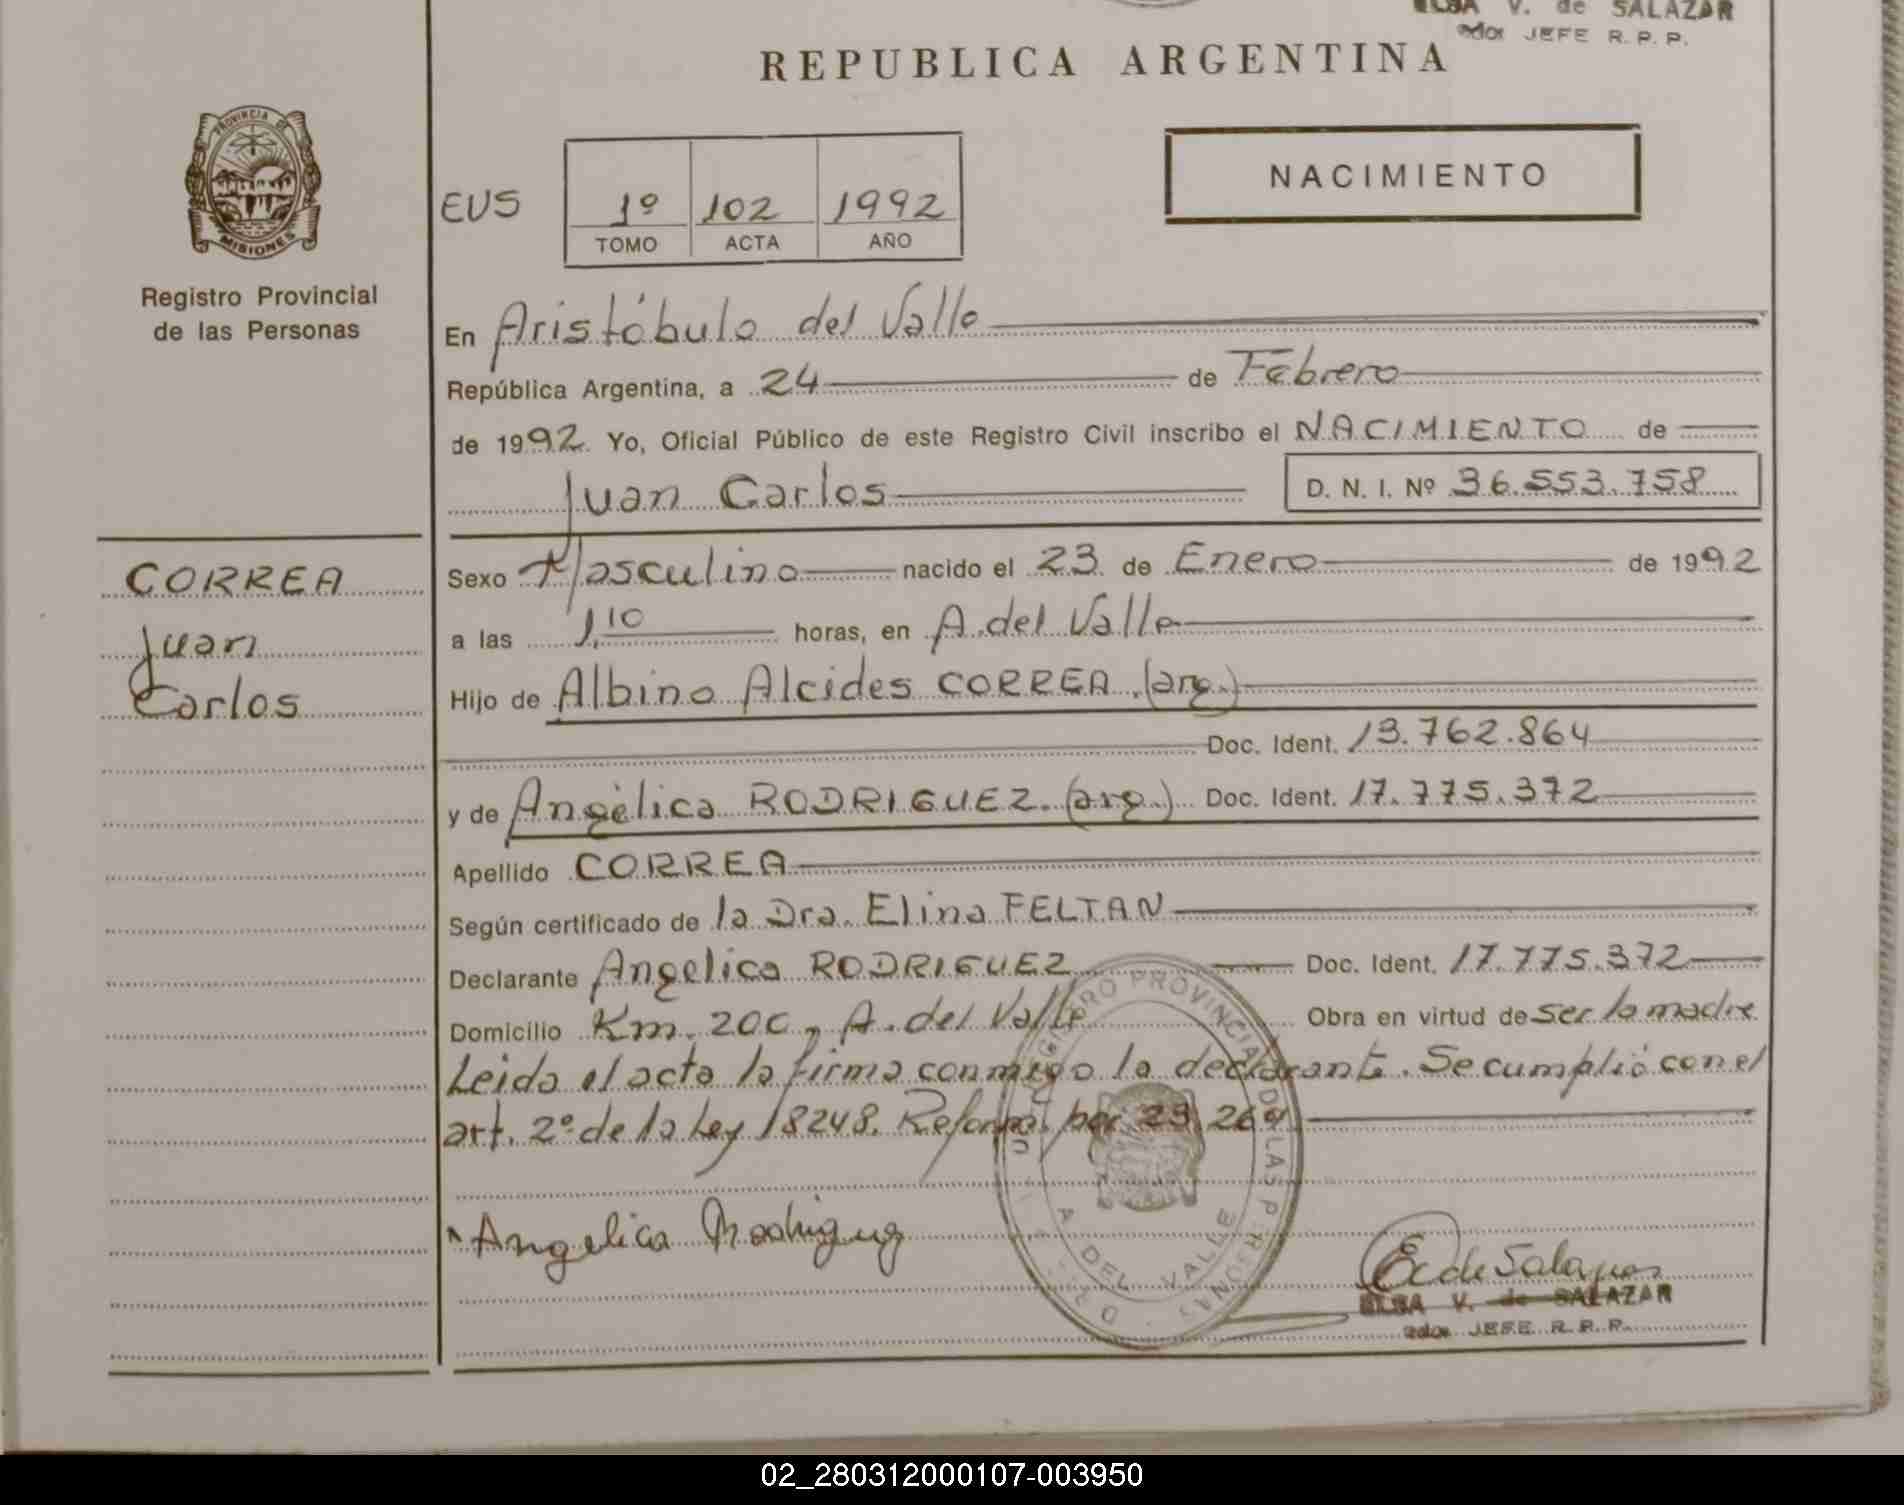 ELSA V. de SALAZAR
JEFE R. P. P.
REPUBLICA ARGENTINA
PROVINCIA DE
MISIONES
Registro Provincial
de las Personas
EUS
1º 102 1992
TOMO ACTA AÑO
NACIMIENTO
En Aristóbulo del Valle
República Argentina, a 24 de Febrero
de 1992. Yo, Oficial Público de este Registro Civil inscribo el NACIMIENTO de
Juan Carlos D. N. I. Nº 36.553.758
CORREA
Juan
Carlos
Sexo Masculino nacido el 23 de Enero de 1992
a las 1,10 horas, en A. del Valle
Hijo de Albino Alcides CORREA (arg.)
Doc. Ident. 13.762.864
y de Angélica RODRIGUEZ (arg.) Doc. Ident. 17.775.372
Apellido CORREA
Según certificado de la Dra. Elina FELTAN
Declarante Angelica RODRIGUEZ Doc. Ident. 17.775.372
Domicilio Km. 200, A. del Valle Obra en virtud de ser la madre
Leida el acta la firma conmigo la declarante. Se cumplió con el
art. 2º de la Ley 18248. Reforma por 23.264.
REGISTRO PROVINCIAL DE LAS PERSONAS
A. DEL VALLE
Angelica Rodriguez
E. de Salazar
ELSA V. de SALAZAR
JEFE R. P. P.
02_280312000107-003950